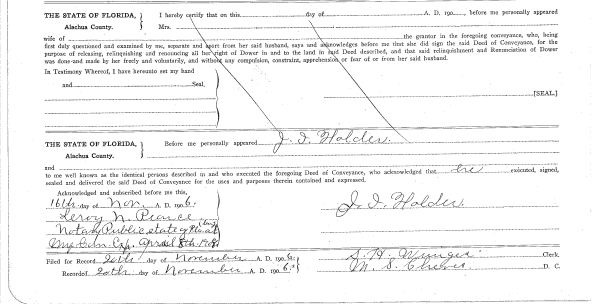 THE STATE OF FLORIDA, I hereby certify that on this day of A. D. 190 , before me personally appeared
Alachua County. Mrs.
wife of the grantor in the foregoing conveyance, who, being
first duly questioned and examined by me, separate and apart from her said husband, says and acknowledges before me that she did sign the said Deed of Conveyance, for the
purpose of releasing, relinquishing and renouncing all her right of Dower in and to the land in said Deed described, and that said relinquishment and Renunciation of Dower
was done and made by her freely and voluntarily, and without any compulsion, constraint, apprehension or fear of or from her said husband.
In Testimony Whereof, I have hereunto set my hand
and Seal,
[SEAL.]
THE STATE OF FLORIDA, Before me personally appeared J. I. Holder
Alachua County.
and
to me well known as the identical persons described in and who executed the foregoing Deed of Conveyance, who acknowledged that he executed, signed,
sealed and delivered the said Deed of Conveyance for the uses and purposes therein contained and expressed.
Acknowledged and subscribed before me this,
16th day of Nov. A. D. 190 6. J. I. Holder
Leroy N. Pearce
Notary Public state of Fla. at
My Com. Exp. April 8th
Filed for Record 20th day of November A. D. 190 6. S. H. Clerk.
Recorded 20th day of November A. D. 190 6. M. S. Cheves D. C.